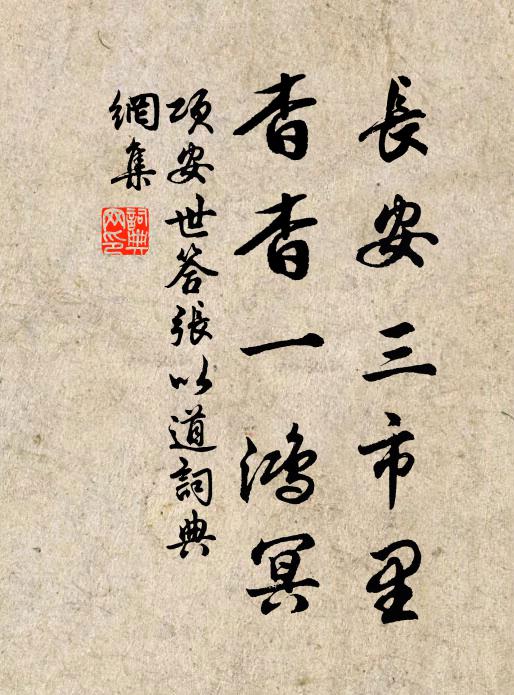 長安三市里
杳杳一鴻冥
項安世答張以道詞典
網集
詞典
网印